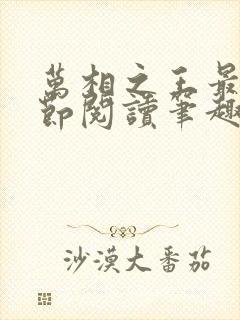 萬相之王最
節閱讀筆趣
沙漠大番茄